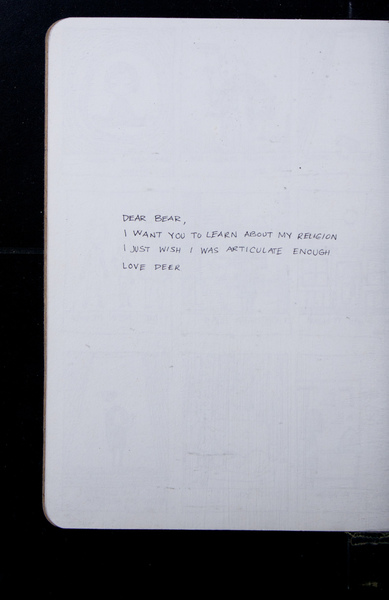 DEAR BEAR,
I WANT YOU TO LEARN ABOUT MY RELIGION
I JUST WISH I WAS ARTICULATE ENOUGH
LOVE DEER